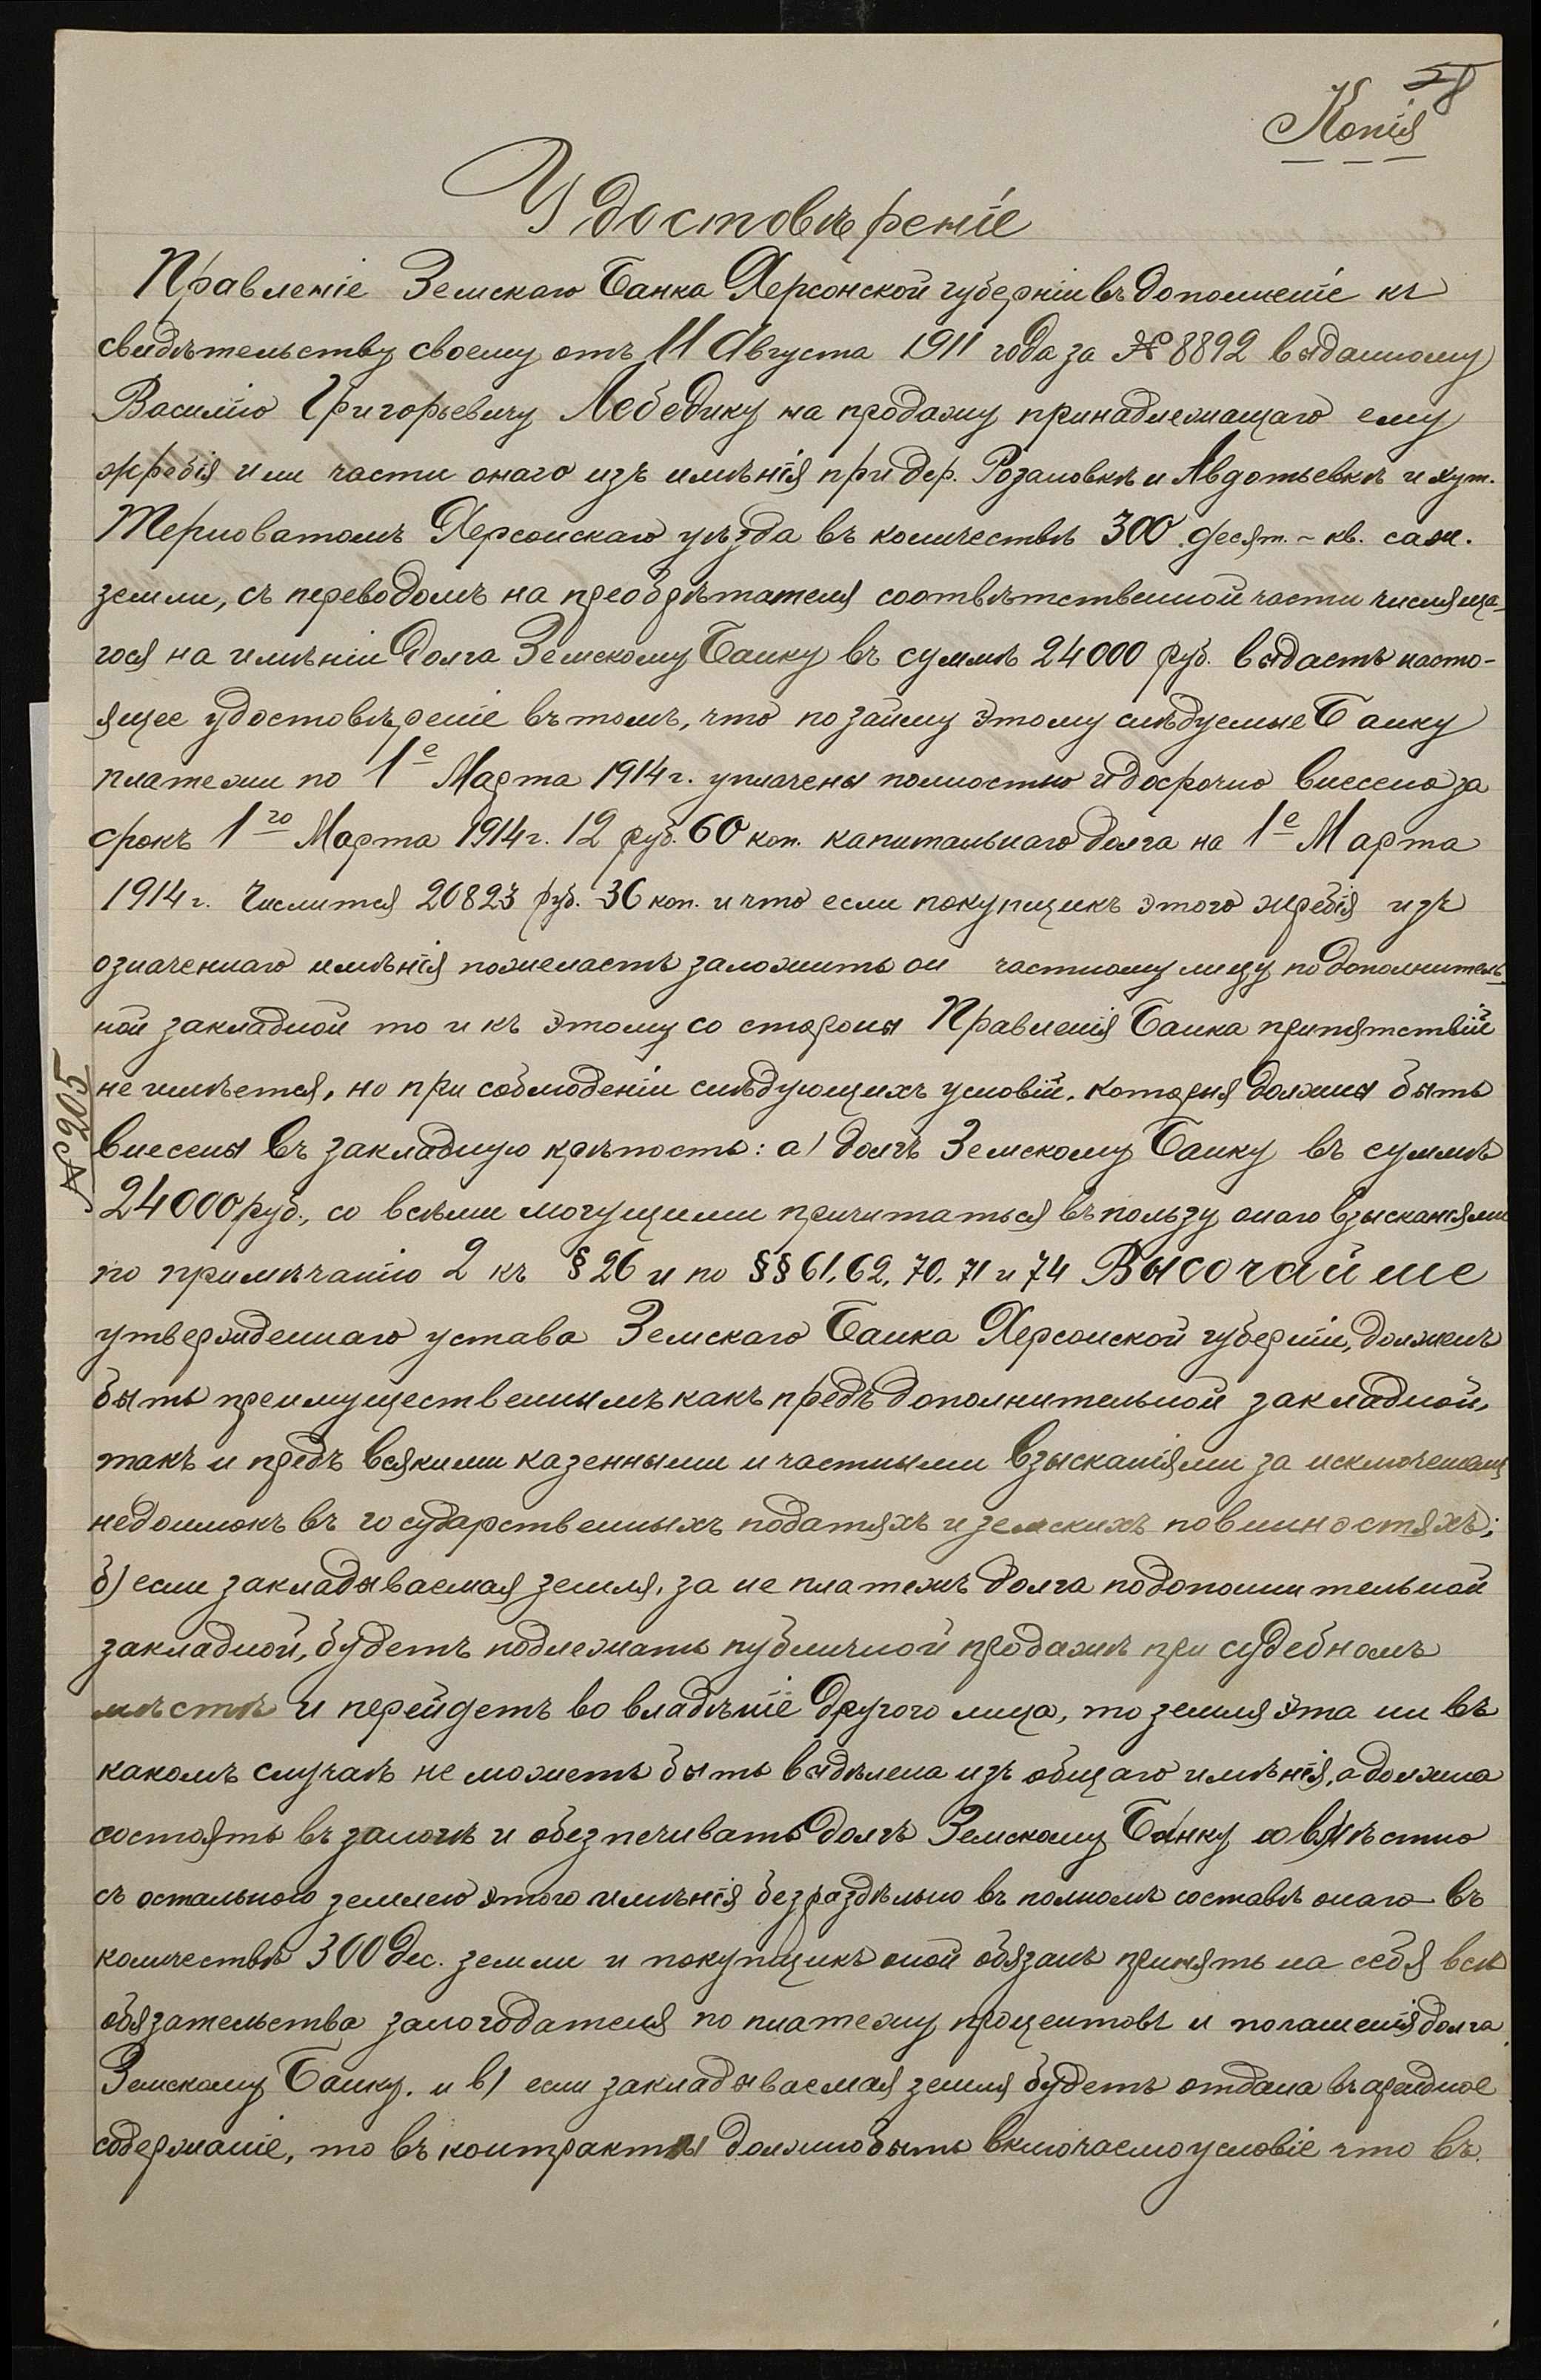 58
Копія
Удостовѣреніе
Правленіе Земскаго Банка Херсонской губерніи въ дополненіе къ
свидѣтельству своему отъ 11 Августа 1911 года за № 8892 выданному
Василію Григорьевичу Лебедику на продажу принадлежащаго ему
жребія или части онаго изъ имѣнія при дер. Розановкѣ и Авдотьевкѣ и хут.
Терноватомъ Херсонскаго уѣзда въ количествѣ 300 десят. - кв. саж.
земли, съ переводомъ на преобрѣтателя соотвѣтственной части числяща-
гося на имѣніи долга Земскому Банку въ суммѣ 24000 руб. выдастъ насто-
ящее удостовѣреніе въ томъ, что по займу этому слѣдуемые Банку
платежи по 1е Марта 1914 г. уплачены полностью и досрочно внесено за
срокъ 1го Марта 1914 г. 12 руб. 60 коп. капитальнаго долга на 1е Марта
1914 г. Числится 20823 руб. 36 коп. и что если покупщикъ этого жребія изъ
означеннаго имѣнія пожелаетъ заложить он частному лицу по дополнитель-
ной закладной то и къ этому со стороны Правленія Банка припятствій
не имѣется, но при соблюденіи слѣдующихъ условій. которыя должны быть
№ 205
внесены въ закладную крѣпость: а) долгъ Земскому Банку въ суммѣ
24000 руб., со всѣми могущими причитаться въ пользу онаго взысканіями
по примѣчанію 2 къ § 26 и по §§ 61, 62, 70, 71 и 74 Высочайше
утвержденнаго устава Земскаго Банка Херсонской губерніи, долженъ
быть преимущественнымъ какъ предъ дополнительной закладной,
такъ и предъ всякими казенными и частными взысканіями за исключеніемъ
недоимокъ въ государственныхъ податяхъ и земскихъ повинностяхъ;
б) если закладываемая земля, за не платежъ долга по дополнительной
закладной, будетъ подлежать публичной продажѣ при судебномъ
мѣстѣ и перейдетъ во владѣніе другого лица, то земля эта ни въ
какомъ случаѣ не можетъ быть выдѣлена изъ общаго имѣнія, а должна
состоять въ залогѣ и обезпечивать долгъ Земскому Банку совмѣстно
съ остальною землею этого имѣнія безраздѣльно въ полномъ составѣ онаго - въ
количествѣ 300 дес. земли и покупщикъ оной обязанъ принять на себя всѣ
обязательства залогодателя по платежу процентовъ и погашенія долга
Земскому Банку. и в) если закладываемая земля будетъ отдана въ арендное
содержаніе, то въ контракты должно быть включаемо условіе что въ